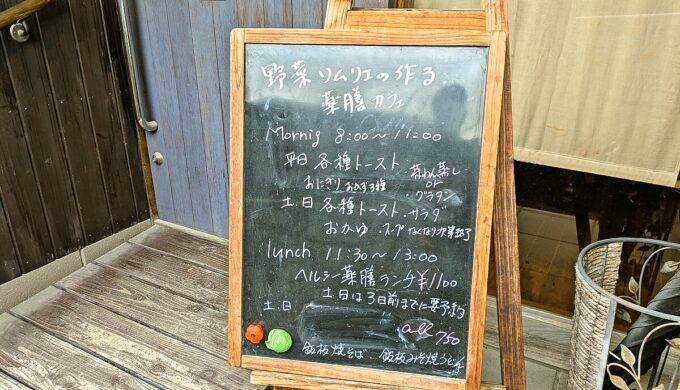 野菜ソムリエの作る
薬膳カフェ
Mornig 8:00～11:00
平日 各種トースト・茶わん蒸し
おにぎり おかず3種 or
・グラタン
土.日 各種トースト・サラダ
おかゆ・スープ なくなり次第終了
lynch 11:30～13:00
ヘルシー薬膳ランチ¥1100
土日は3日前までに要予約
土.日
all 750
鉄板焼そば. 鉄板みそ焼うどん